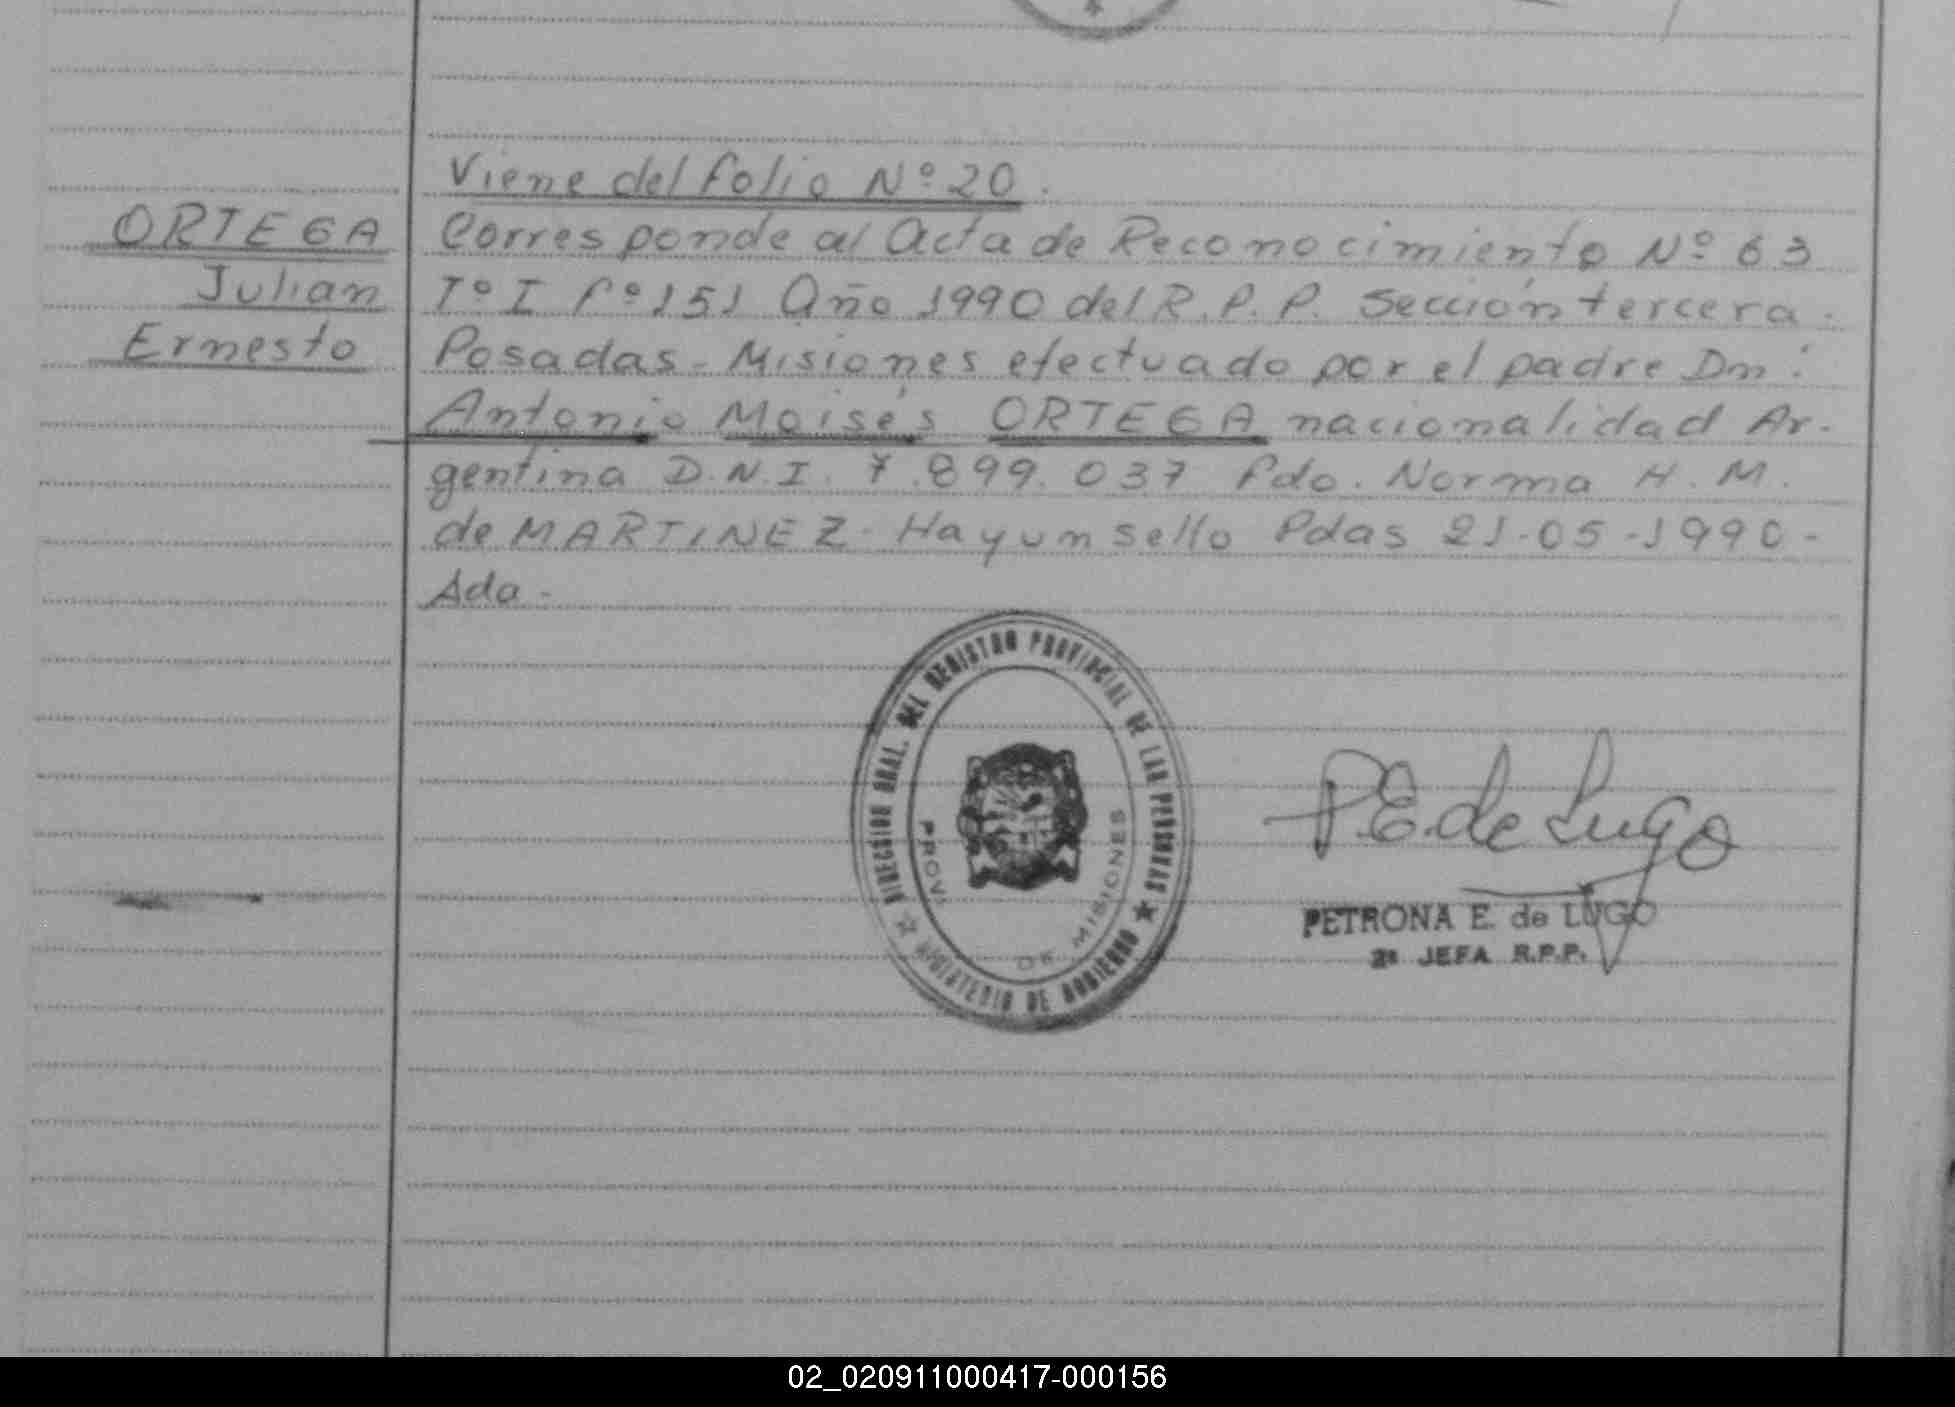 Viene del folio Nº 20.
ORTEGA
Julian
Ernesto
Corresponde al Acta de Reconocimiento Nº 63
Tº I fº 151 Año 1990 del R.P.P. Sección tercera.
Posadas - Misiones efectuado por el padre Dn:
Antonio Moisés ORTEGA nacionalidad Ar-
gentina D.N.I. 7.899.037 fdo. Norma H. M.
de MARTINEZ - Hay un sello Pdas 21-05-1990-
Ada -
DIRECCION GRAL. DEL REGISTRO PROVINCIAL DE LAS PERSONAS
MINISTERIO DE GOBIERNO
PROV. DE MISIONES
P.E. de Lugo
PETRONA E. de LUGO
2ª JEFA R.P.P.
02_020911000417-000156